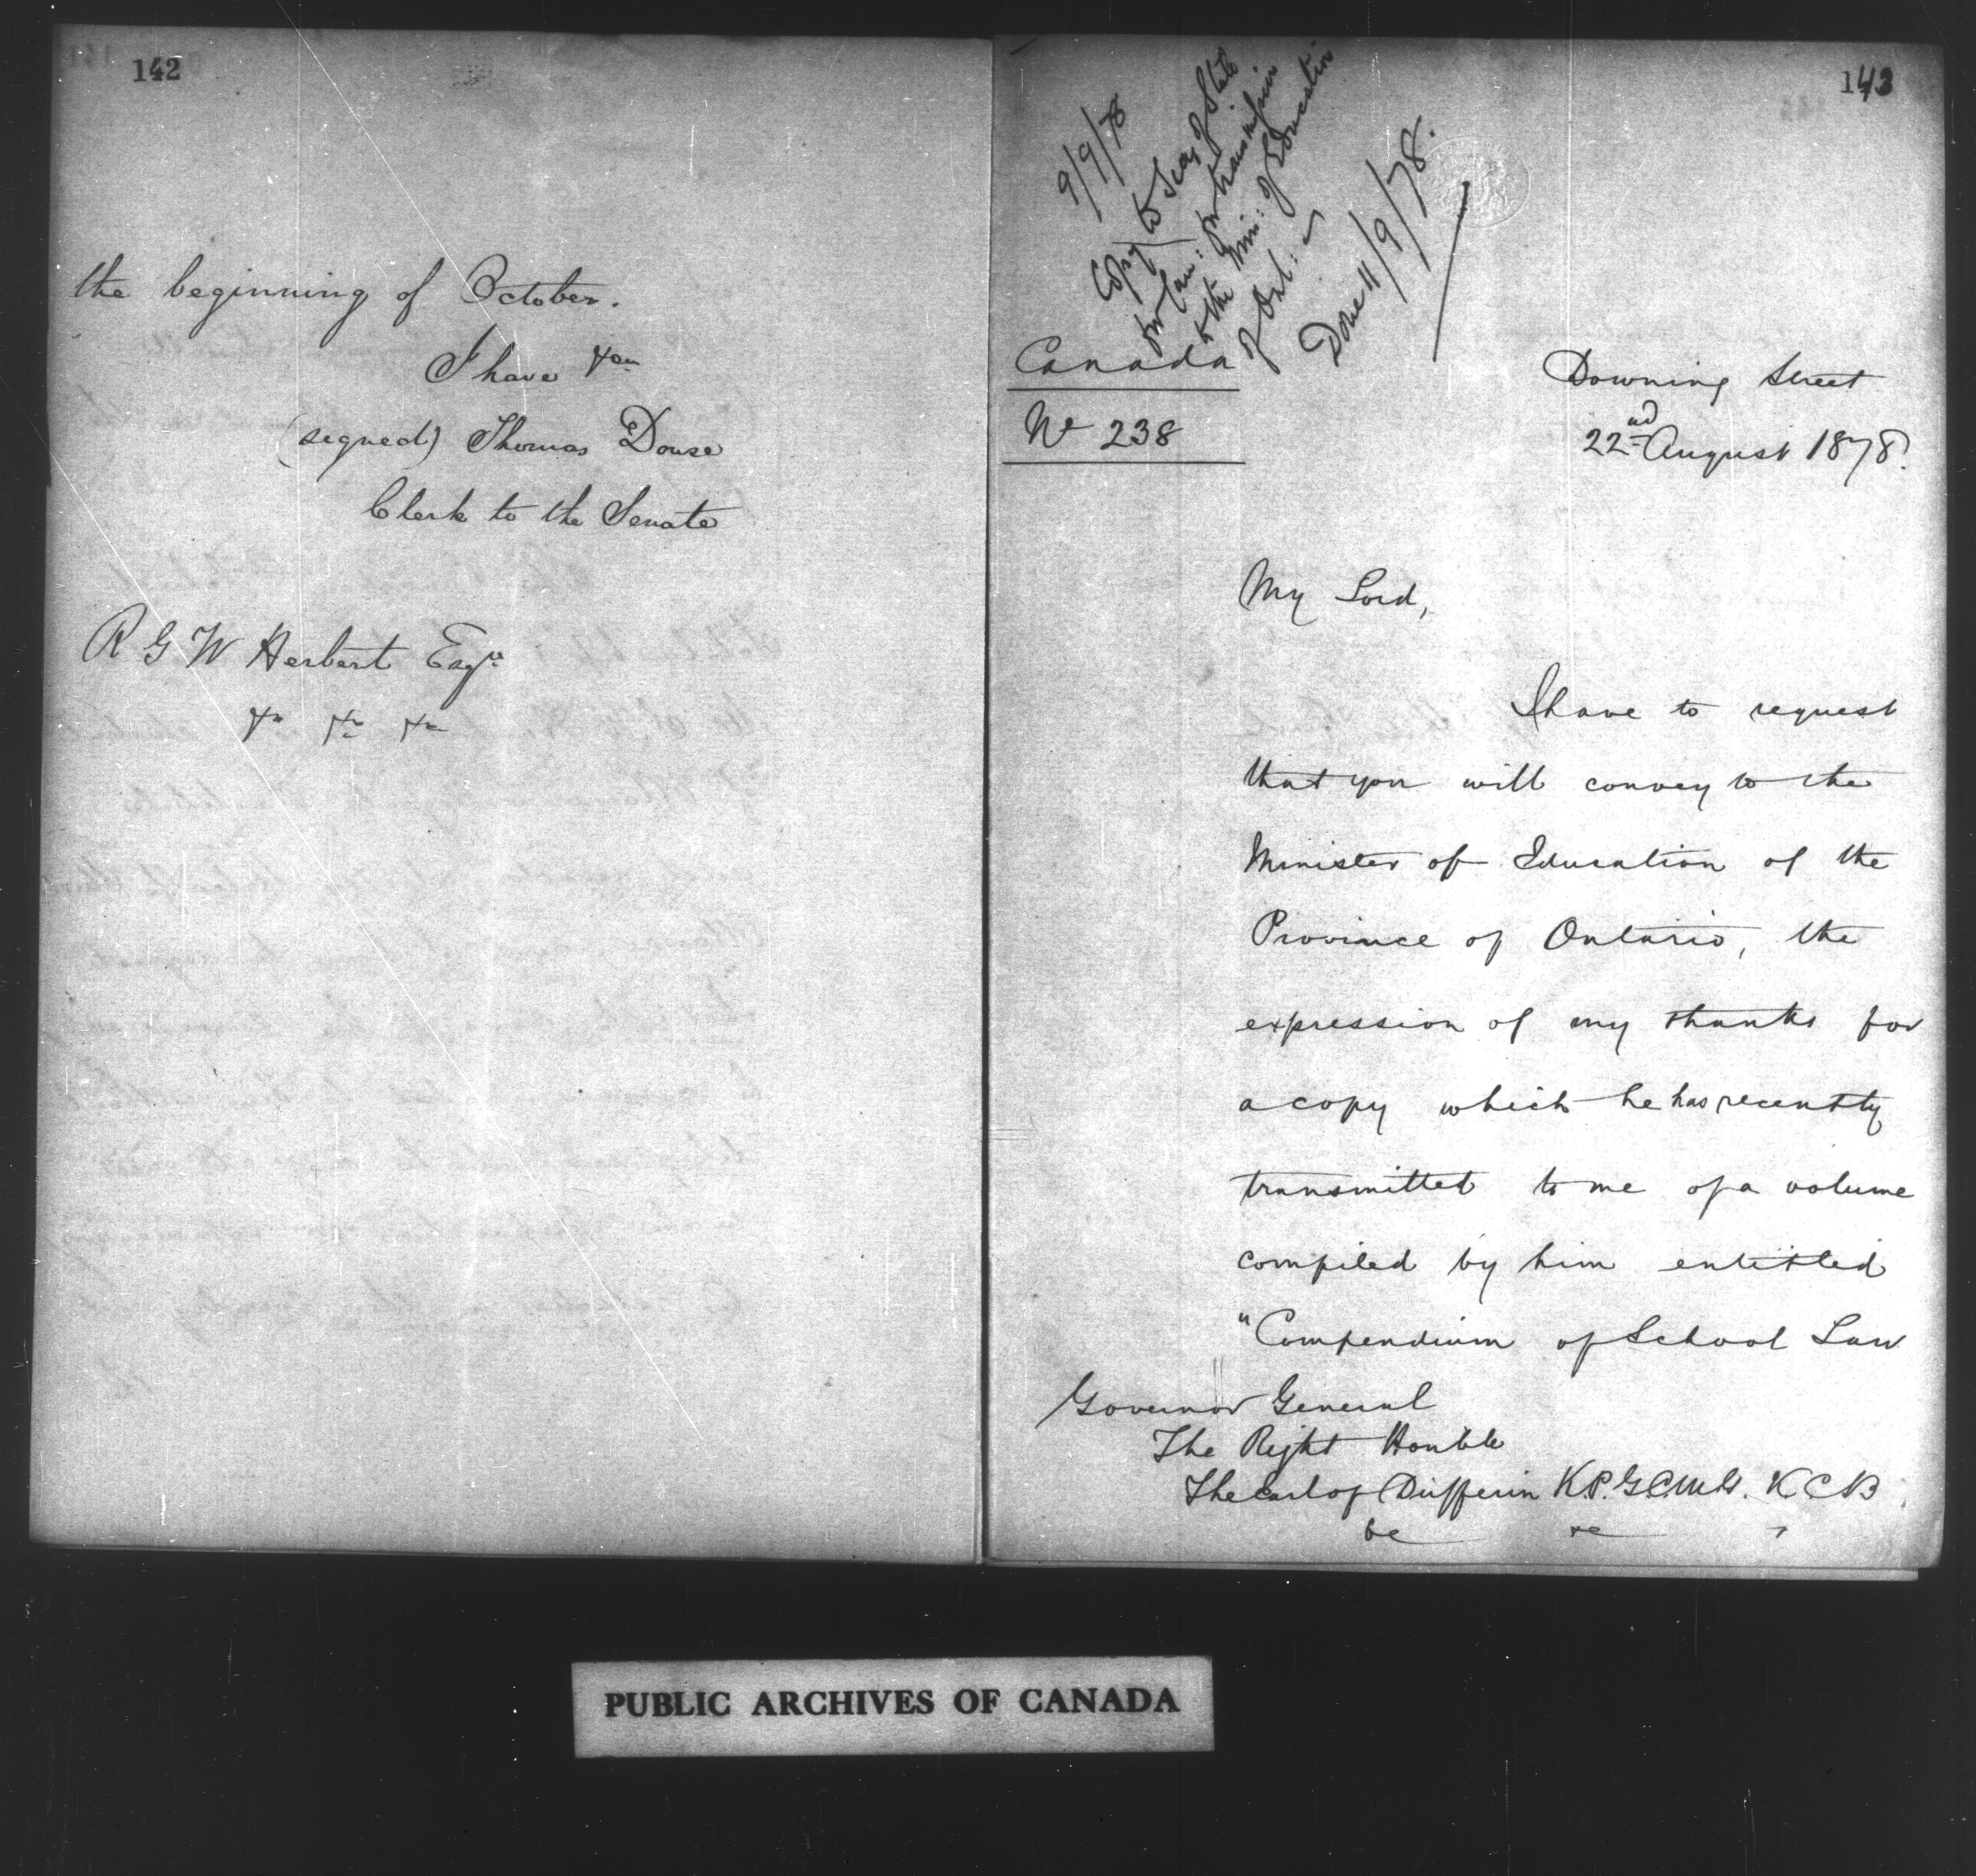 142
the beginning of October.
I have &c
(signed) Thomas Douse
Clerk to the Senate
R G W Herbert Esqre
&c &c &c
143
9/9/78
Copy to Secy of State
for Can: for transmission
to the Min: of Education
of Ont:
Done 11/9/78.
Canada
No 238
Downing Street
22nd August 1878.
My Lord,
I have to request
that you will convey to the
Minister of Education of the
Province of Ontario, the
expression of my thanks for
a copy which he has recently
transmitted to me of a volume
compiled by him entitled
"Compendium of School Law
Governor General
The Right Honble
The Earl of Dufferin K.P. G.C.M.G. K C B
&c &c
PUBLIC ARCHIVES OF CANADA